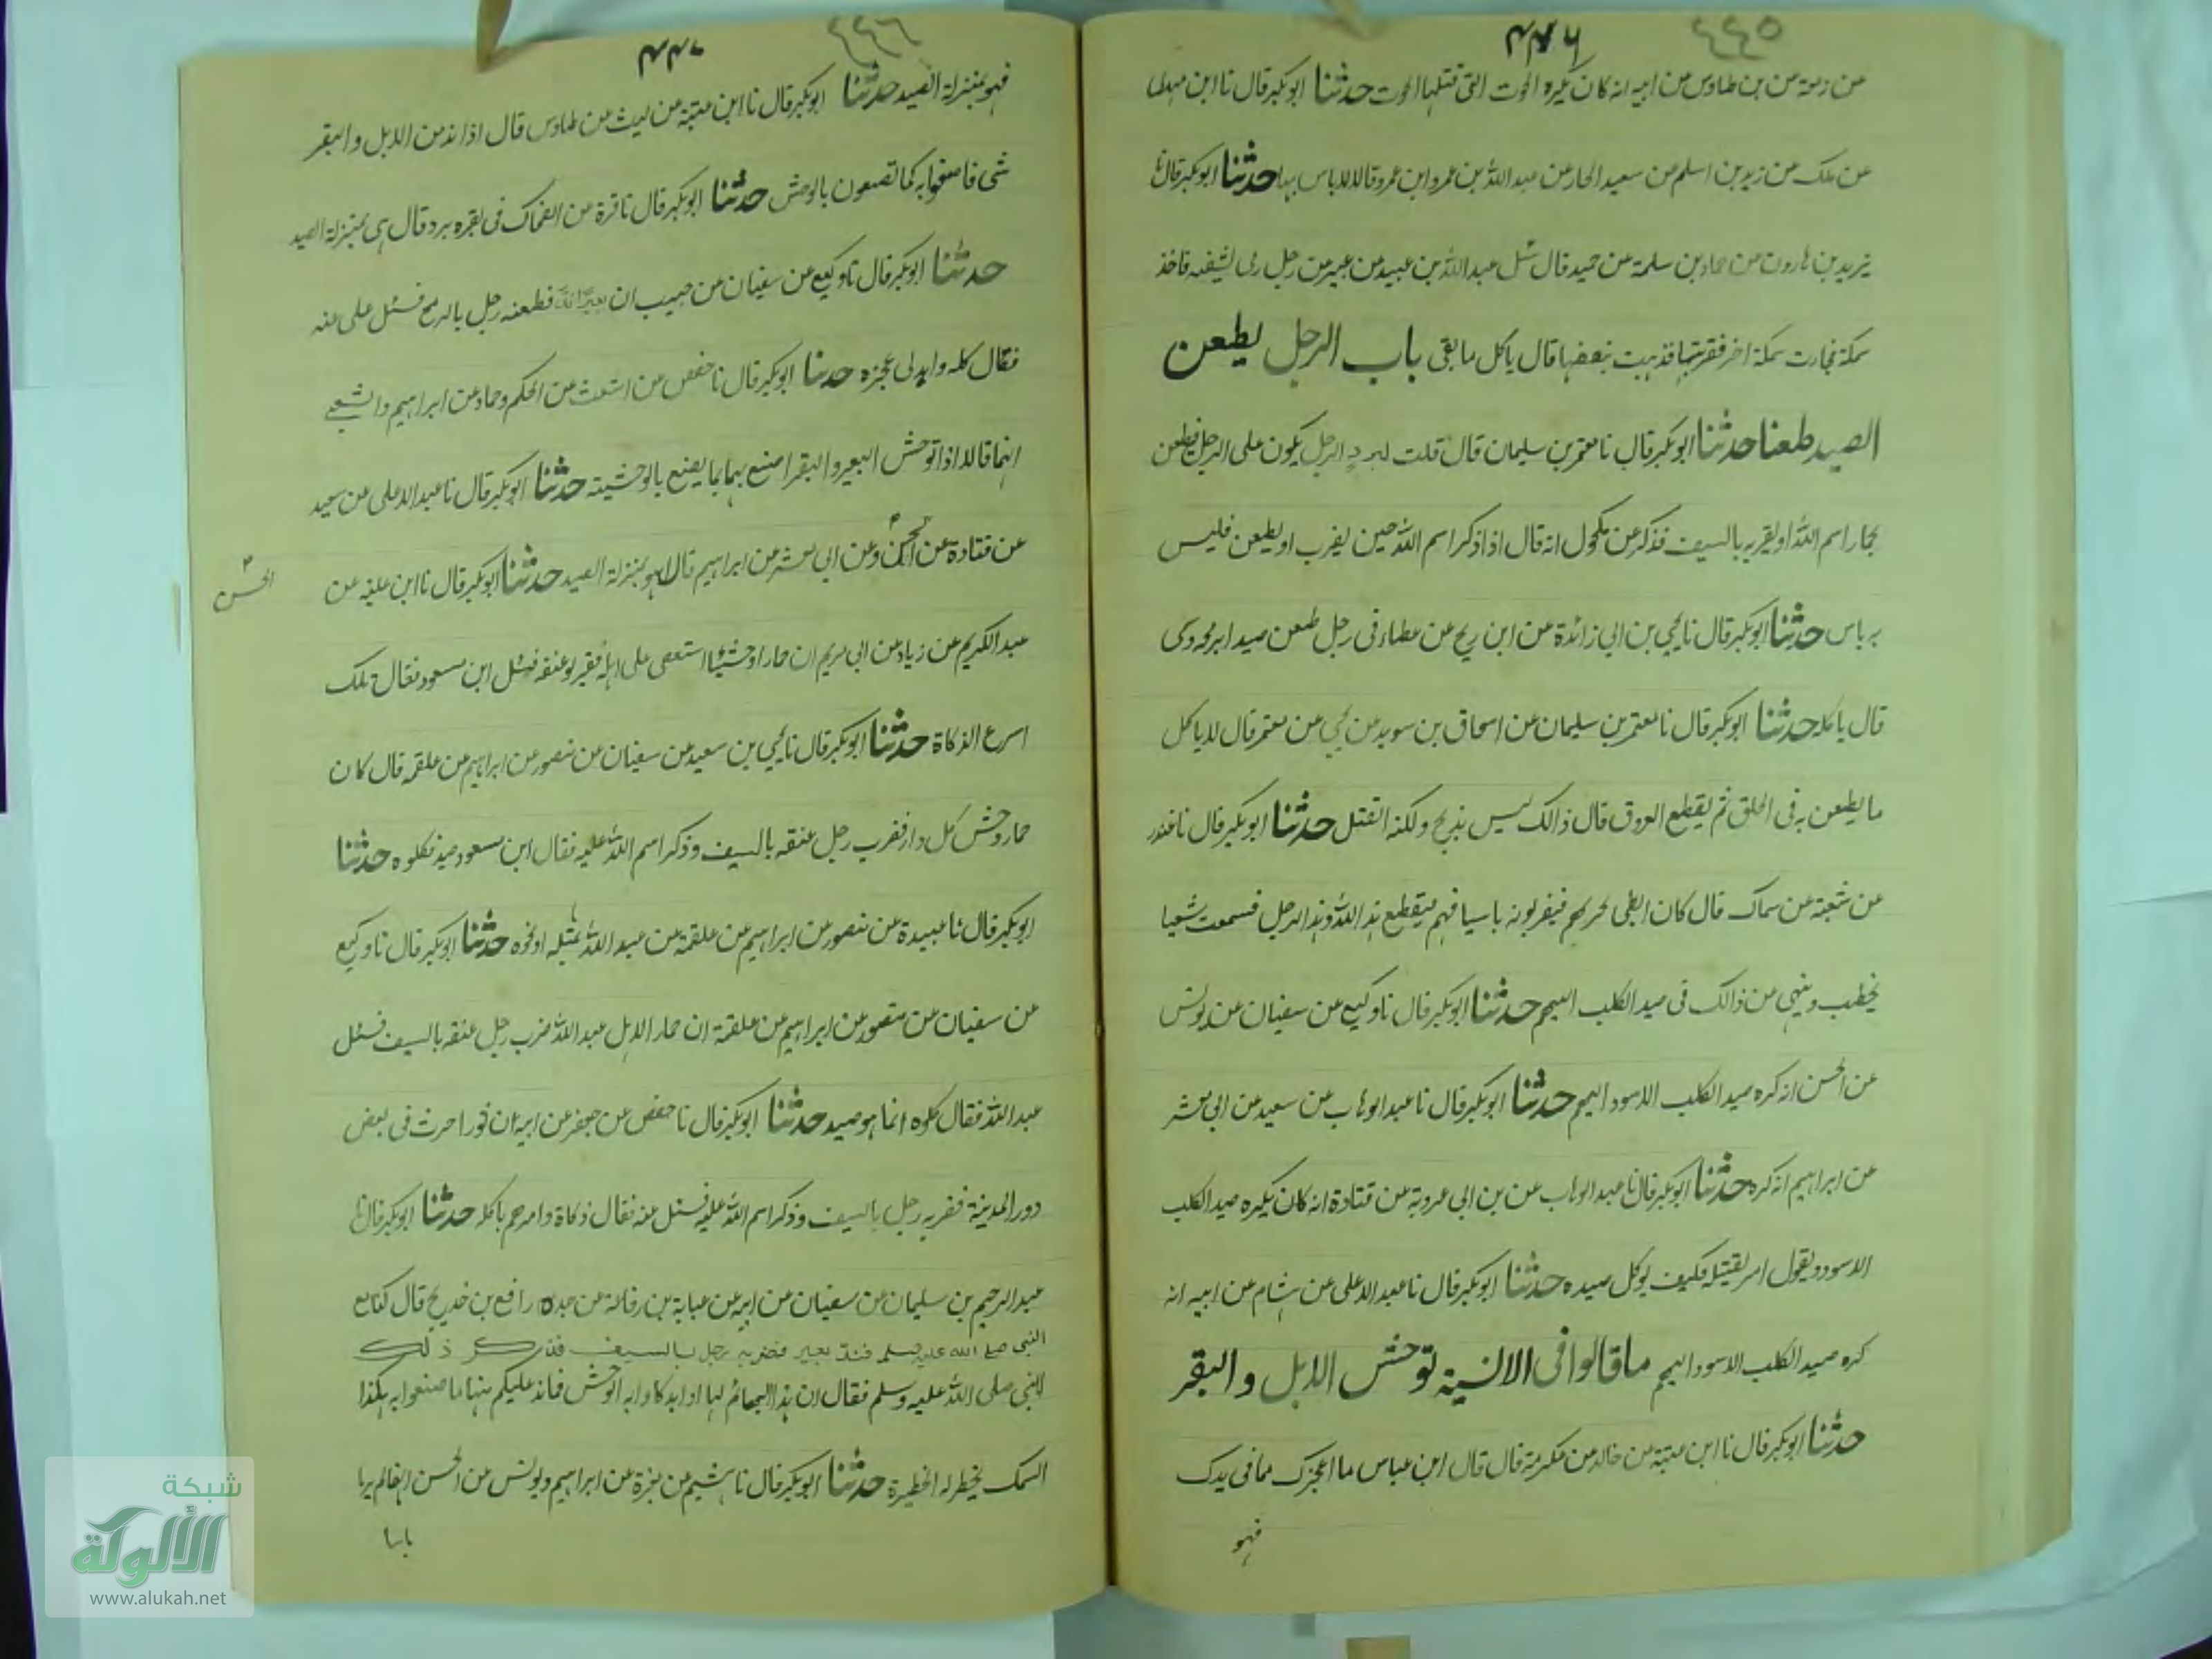 ٤٤٥
٤٤٦
من زمعة عن بن طاوس عن ابيه انه كان يكره الحوت التى قتلها الحوت حدثنا ابوبكر قال نا ابن مهدى
عن ملك عن زيد بن اسلم عن سعيد الجار عن عبد الله بن عمرو ابن عمر وقالا لا باس بها حدثنا ابوبكر قال نا
يزيد بن هارون عن حماد بن سلمة عن حميد قال سئل عبد الله بن عبيد بن عمير عن رجل رمى بشصه فاخذ
سمكة فجارت سمكة اخر فضربتها فذهبت بنصفها قال ياكل ما بقى باب الرجل يطعن
الصيد طعنا حدثنا ابوبكر قال نا معتمر بن سليمان قال قلت لبرد الرجل يكون على الرجل فيطعن
بجار اسم الله او يضربه بالسيف فذكر عن مكحول انه قال اذا ذكر اسم الله حين يضرب او يطعن فليس
به باس حدثنا ابوبكر قال نا يحيى بن ابى زائدة عن ابن جريح عن عطاء فى رجل طعن صيدا برمحه وسمى
قال ياكله حدثنا ابوبكر قال نا معتمر بن سليمان عن اسحاق بن سويد عن يحيى عن معتمر قال لا ياكل
ما يطعن به فى الحلق ثم يقطع العروق قال ذالك ليس بذبح ولكنه القتل حدثنا ابوبكر قال نا غندر
عن شعبة عن سماك قال كان الظبى فيضربونه باسيافهم فيقطع هذا الله وهذا الرجل فسمعت
يخطب وينهى عن ذالك فى صيد الكلب البهيم حدثنا ابوبكر قال نا وكيع عن سفيان عن يونس
عن الحسن انه كره صيد الكلب الاسود البهيم حدثنا ابوبكر قال نا عبد الوهاب عن سعيد عن ابى معشر
عن ابراهيم انه كره حدثنا ابوبكر قال نا عبد الوهاب عن بن ابى عروبة عن قتادة انه كان يكره صيد الكلب
الاسود ويقول امر بقتله فكيف يوكل صيده حدثنا ابوبكر قال نا عبد الاعلى عن هشام عن ابيه انه
كره صيد الكلب الاسود البهيم ما قالوا فى الانسية توحش الابل والبقر
حدثنا ابوبكر قال نا ابن عتبة عن خالد عن عكرمة قال قال ابن عباس ما اعجزك مما فى يدك
فهو
٤٤٦
٤٤٧
فهو بمنزلة الصيد حدثنا ابوبكر قال نا ابن عتبة عن ليث عن طاوس قال اذا ند من الابل والبقر
شى فاصنعوا به كما تصنعون بالوحش حدثنا ابوبكر قال نا قرة عن الضحاك فى بقره برد قال هى بمنزلة الصيد
حدثنا ابوبكر قال نا وكيع عن سفيان عن حبيب ان بعيرا ند فطعنه رجل بالرمح فسئل على عنه
فقال كله واهد لى عجزه حدثنا ابوبكر قال نا حفص عن اشعث عن الحكم وحماد عن ابراهيم والشعبى
انهما قالا اذا توحش البعير والبقر اصنع بهما ما يصنع بالوحشية حدثنا ابوبكر قال نا عبد الاعلى عن سعيد
عن قتادة عن الحسن وعن ابى معشر عن ابراهيم قالا هو بمنزلة الصيد حدثنا ابوبكر قال نا ابن علية عن
الحسن
عبد الكريم عن زياد عن ابى مريم ان حمارا وحشيا استعصى على اهله فضربوا عنقه فسئل ابن مسعود فقال تلك
اسرع الذكاة حدثنا ابوبكر قال نا يحيى بن سعيد عن سفيان عن منصور عن ابراهيم عن علقمه قال كان
حمار وحش كل دار فضرب رجل عنقه بالسيف وذكر اسم الله عليه فقال ابن مسعود صيد فكلوه حدثنا
ابوبكر قال نا عبيدة عن منصور عن ابراهيم عن علقمة عن عبد الله بمثله او نحوه حدثنا ابوبكر قال نا وكيع
عن سفيان عن منصور عن ابراهيم عن علقمة ان حمار الاهل عبد الله ضرب رجل عنقه بالسيف فسئل
عبد الله فقال كلوه انما هو صيد حدثنا ابوبكر قال نا حفص عن جعفر عن ابيه ان ثورا حرث فى بعض
دور المدينة فضربه رجل بالسيف وذكر اسم الله عليه فسئل عنه فقال ذكاة وامرهم باكله حدثنا ابوبكر قال نا
عبد الرحيم بن سليمان عن سفيان عن ابيه عن عباية بن رفاعة عن جده رافع بن خديج قال كنا مع
النبى صلى الله عليه وسلم فند بعير فضربه رجل بالسيف فذكر ذلك
للنبى صلى الله عليه وسلم فقال ان هذا البهائم لها اوابد كاوابد الوحش فما ند عليكم منها ما صنعوا به هكذا
السمك يحظر له الحظيرة حدثنا ابوبكر قال نا هشيم عن مغيرة عن ابراهيم ويونس عن الحسن انهما لم يريا
باسا
شبكة
الألوكة
www.alukah.net